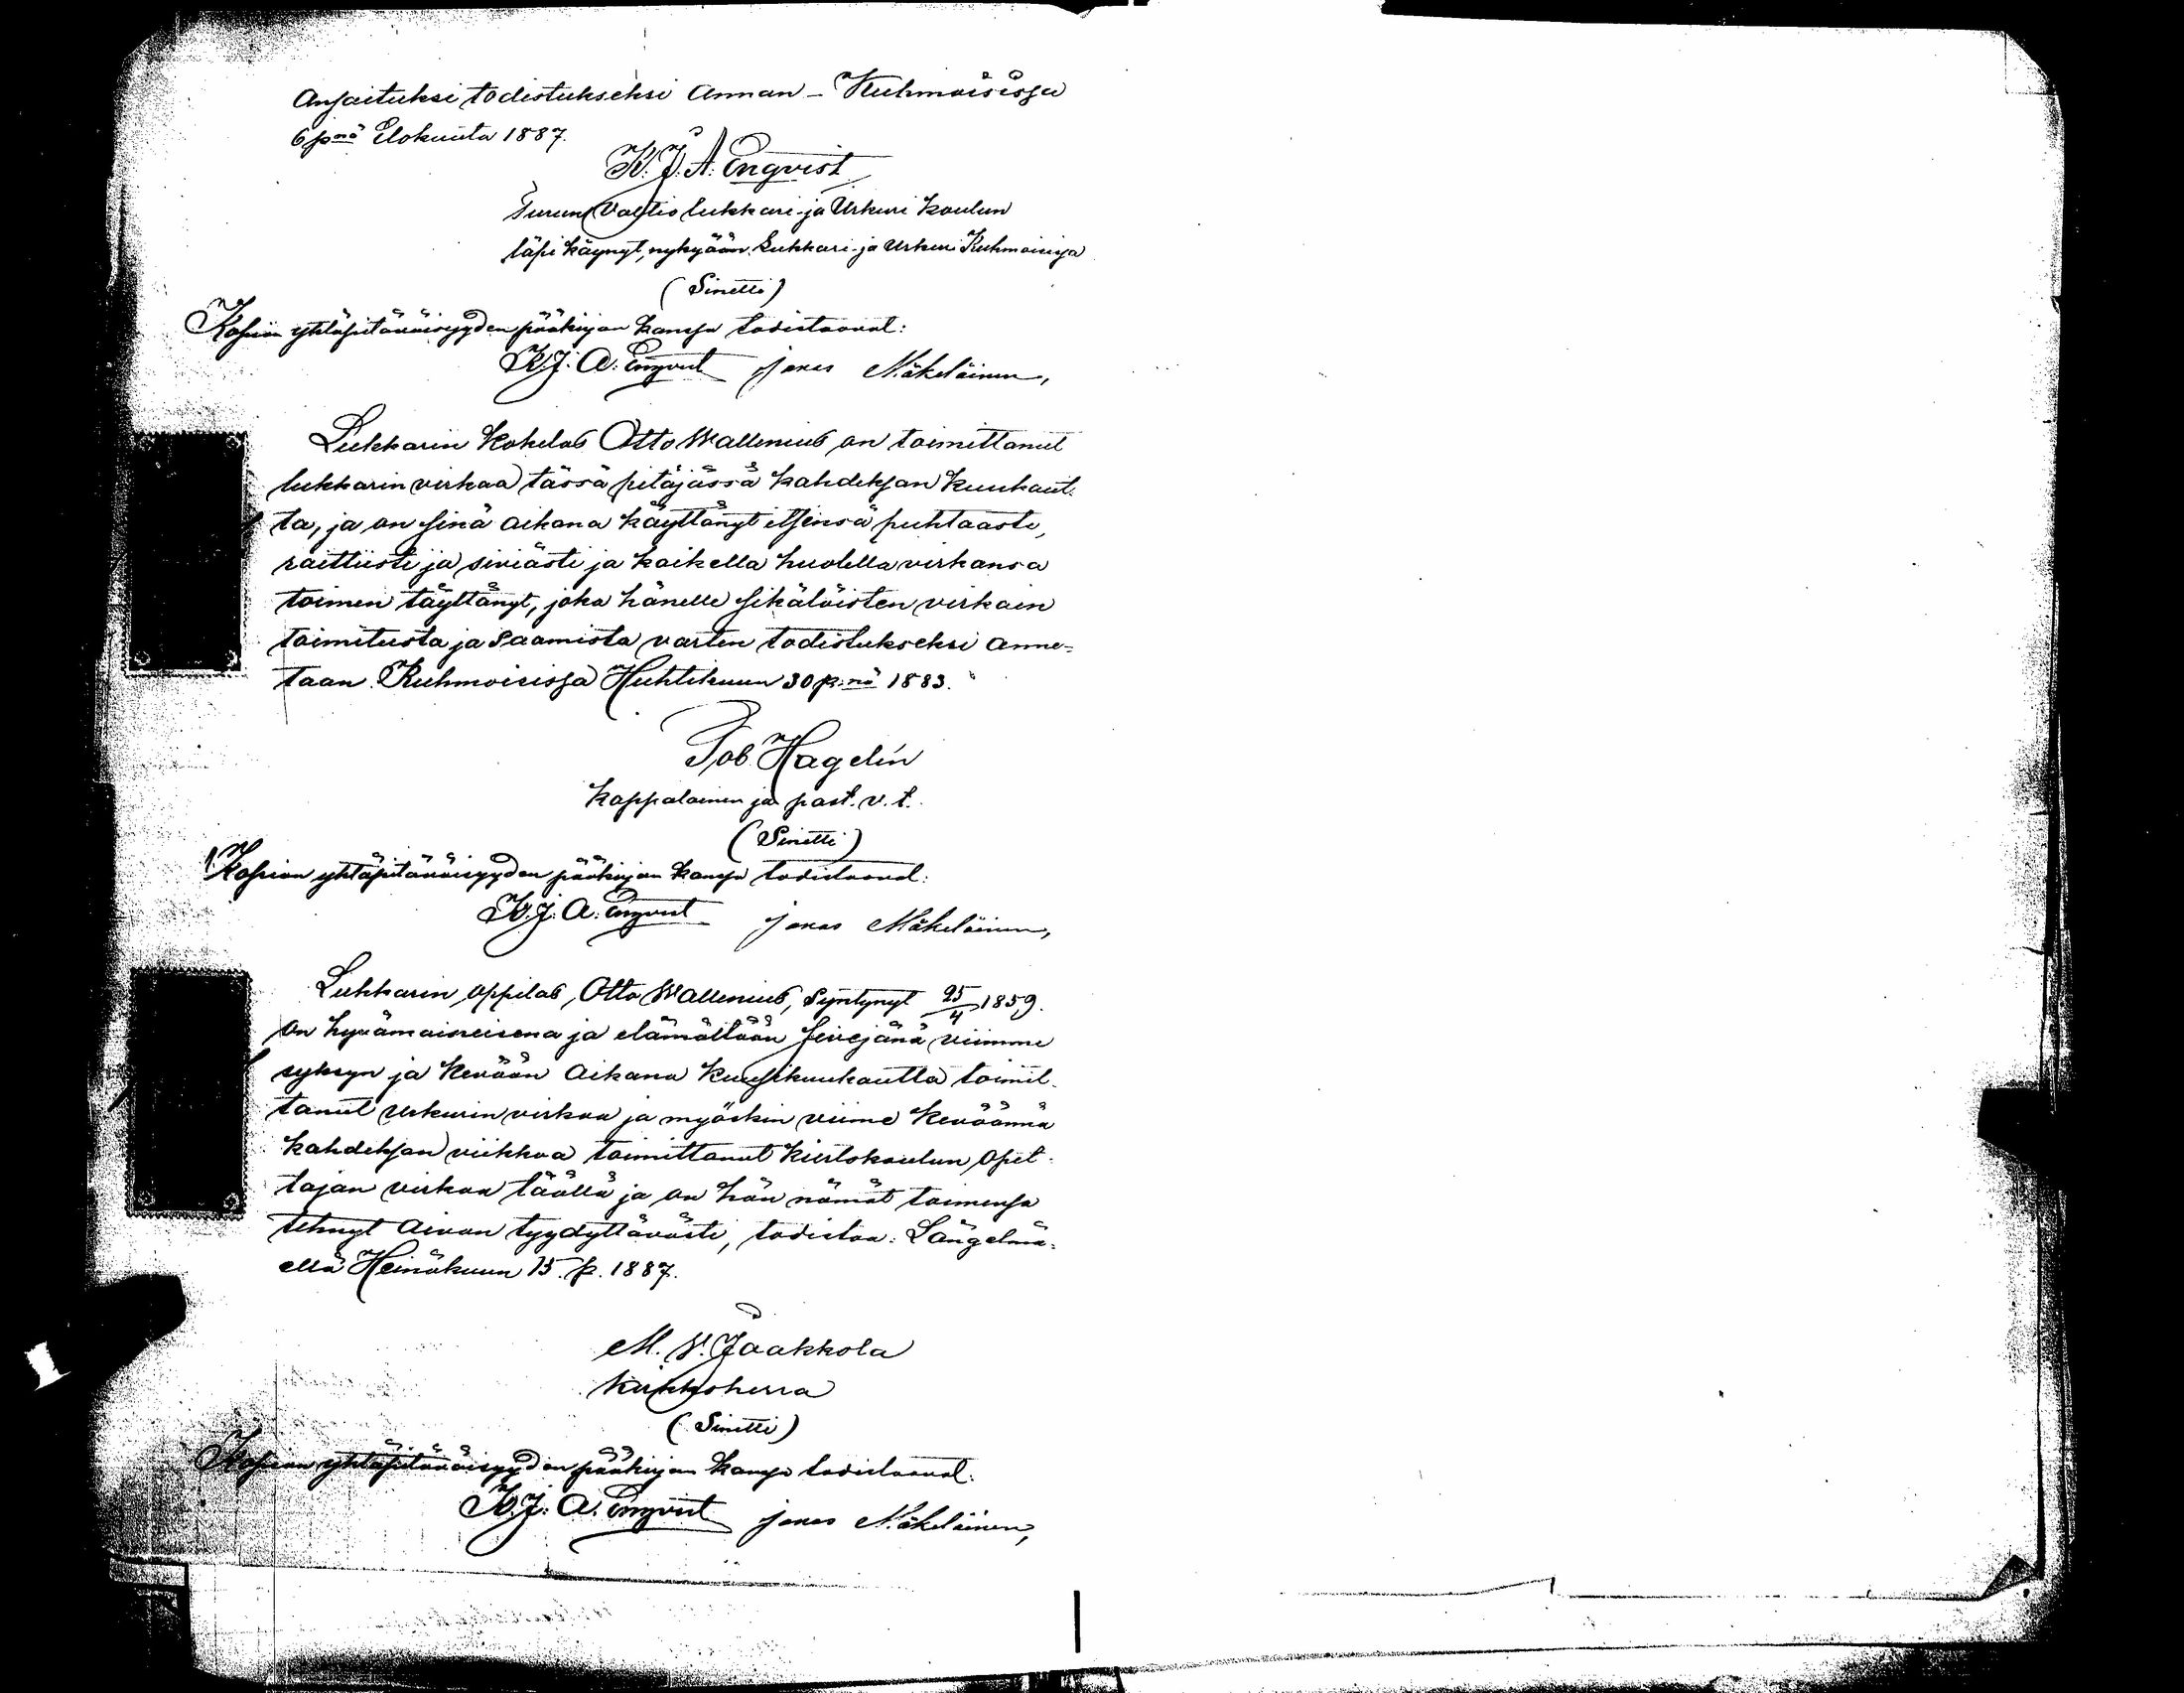 Ansaituksi todistukseksi annan – Kuhmoisissa
6 pnä Elokuuta 1887.
K. J. A. Enqvist
Turun Valtio lukkari- ja Urkuri koulun
läpi käynyt, nykyään Lukkari- ja Urkuri Kuhmoisissa
(Sinetti)
Kopian yhtäpitäväisyyden pääkirjan kanssa todistavat:
K. J. A. Enqvist Jonas Mäkeläinen,
Lukkarin kokelas Otto Wallenius on toimittanut
lukkarin virkaa tässä pitäjässä kahdeksan kuukaut-
ta, ja on sinä aikana käyttänyt itsensä puhtaasti,
raittiisti ja siviästi ja kaikella huolella virkansa
toimen täyttänyt, joka hänelle sikäläisten virkain
toimitusta ja saamista varten todistukseksi anne-
taan. Kuhmoisissa Huhtikuun 30 p:nä 1883.
Tob. Hagelin
Kappalainen ja past. v. t.
(Sinetti)
Kopian yhtäpitäväisyyden pääkirjan kanssa todistavat:
K. J. A. Enqvist Jonas Mäkeläinen,
Lukkarin oppilas, Otto Wallenius, Syntynyt 25/4 1859.
on hyvämaineisena ja elämältään siivejänä viimme
syksyn ja kevään aikana kuusikuukautta toimit-
tanut Urkurin virkaa ja myöskin viime keväännä
kahdeksan viikkoa toimittanut kiertokoulun opet-
tajan virkaa täällä ja on hän nämät toimensa
tehnyt aivan tyydyttävästi, todistaa: Längelmä-
ellä Heinäkuun 15. p. 1887.
M. W. Jaakkola
Kirkkoherra
(Sinetti)
Kopian yhtäpitäväisyyden pääkirjan kanssa todistavat:
K. J. A. Enqvist Jonas Mäkeläinen,